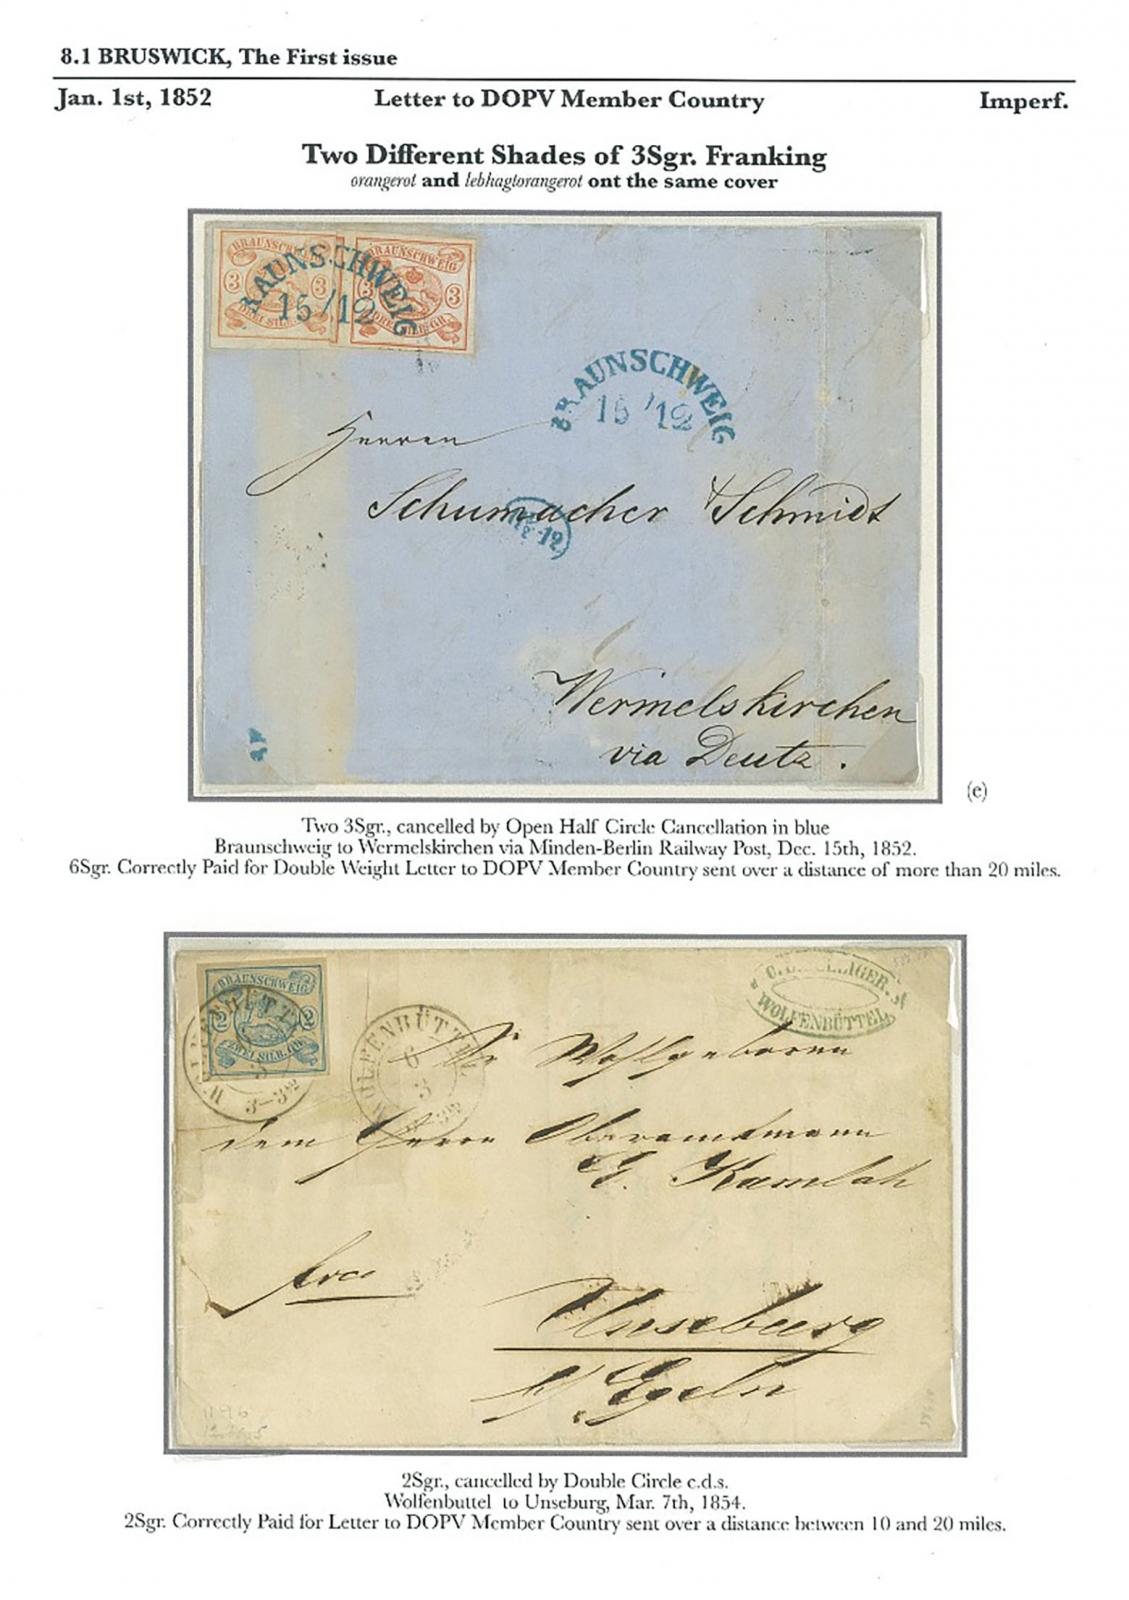 8.1 BRUSWICK, The First issue
Jan. 1st, 1852 Letter to DOPV Member Country Imperf.
Two Different Shades of 3Sgr. Franking
orangerot and lebhagtorangerot ont the same cover
BRAUNSCHWEIG BRAUNSCHWEIG
3 3 3 3
RAUNSCHWEIG
15/12
BRAUNSCHWEIG
15/12
Herren
Schumacher & Schmidt
Wermelskirchen
via Deutz.
(e)
Two 3Sgr., cancelled by Open Half Circle Cancellation in blue
Braunschweig to Wermelskirchen via Minden-Berlin Railway Post, Dec. 15th, 1852.
6Sgr. Correctly Paid for Double Weight Letter to DOPV Member Country sent over a distance of more than 20 miles.
BRAUNSCHWEIG
2 2
ZWEI SILB. GR.
WOLFENBÜTTEL
6
3
WOLFENBÜTTEL
Wohlgeboren
dem Herrn Oberamtmann
G. Kamlah
frco
Unseburg
b/ Egeln
2Sgr., cancelled by Double Circle c.d.s.
Wolfenbuttel to Unseburg, Mar. 7th, 1854.
2Sgr. Correctly Paid for Letter to DOPV Member Country sent over a distance between 10 and 20 miles.